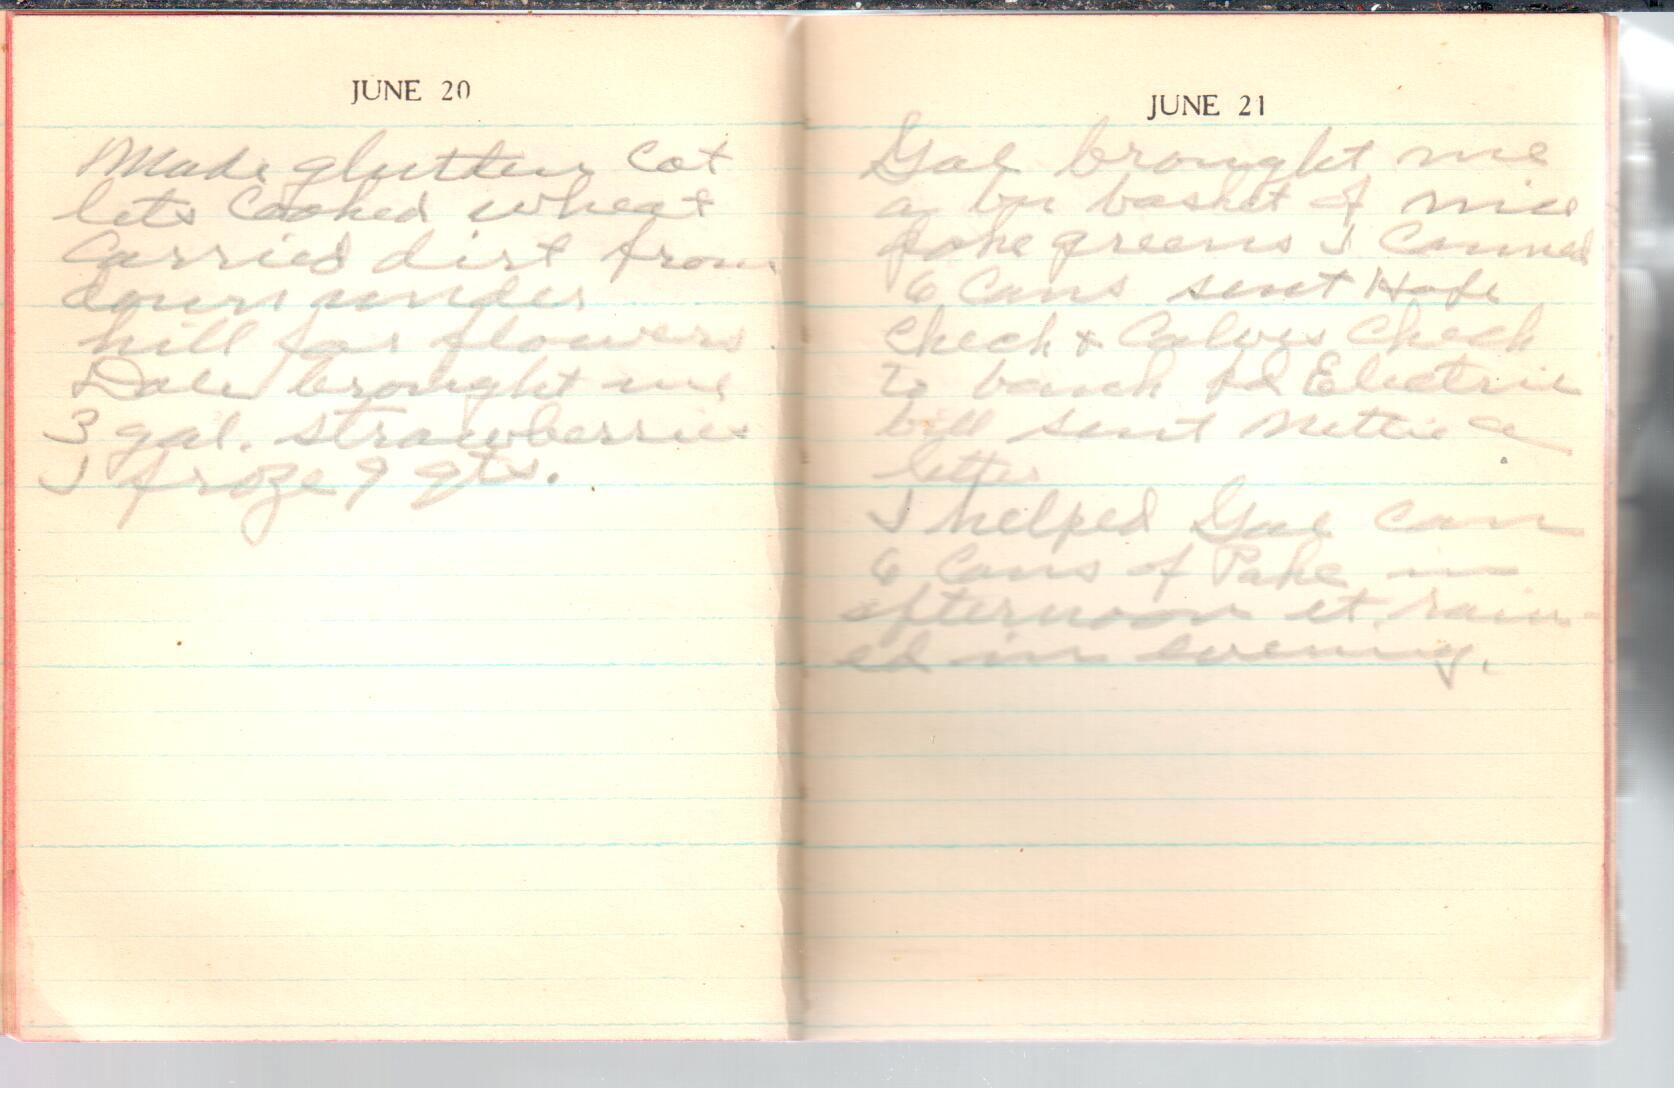 JUNE 20
Made glutten Cot
lets Cooked wheat
Carried dirt from
down under
hill for flowers.
Dale brought me
3 gal. strawberries
I froze 9 qts.
JUNE 21
Gal brought me
a bu basket of nice
poke greens I Canned
6 Cans sent Hope
Check & Calves Check
to bank pd Electric
bill sent Nettie a
letter
I helped Gal can
6 Cans of Poke in
afternoon it rain-
ed in evening.